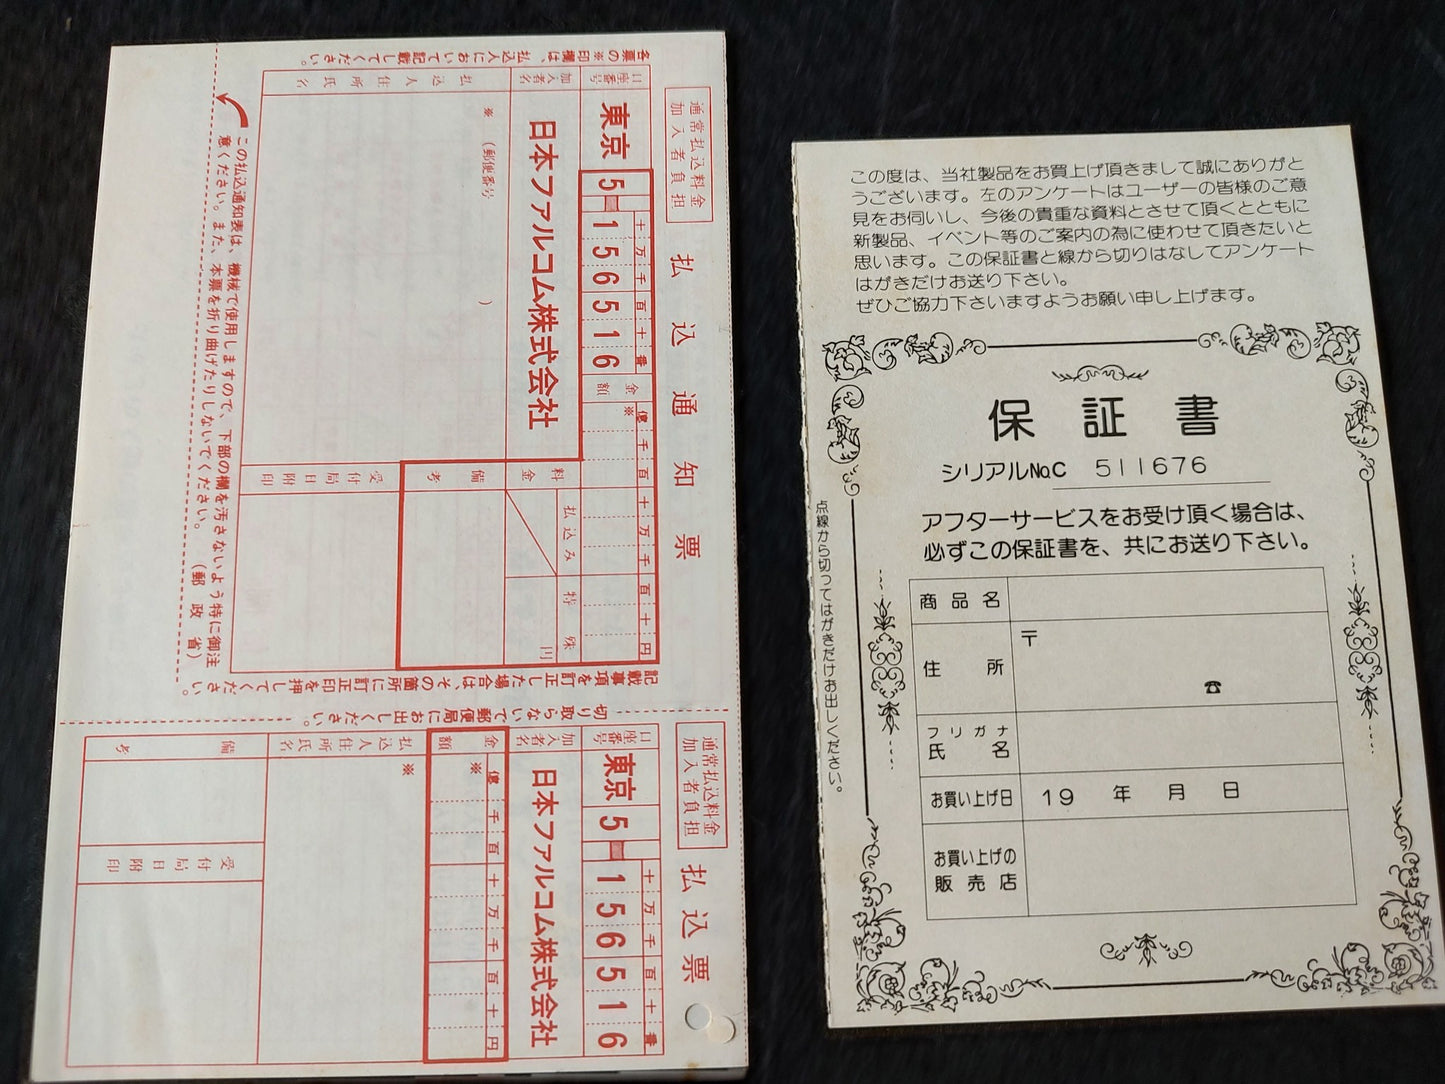 各票の※印欄は、払込人において記載してください。
通常払込料金
加入者負担
払込通知票
口座番号
東京 5-156516
十万千百十番
加入者名
日本ファルコム株式会社
金額
※
億千百十万千百十円
払込人住所氏名
※ (郵便番号 )
料金
払込み
特殊
円
備考
受付局日附印
この払込通知表は、機械で使用しますので、下部の欄を汚さないよう特に御注
意ください。また、本票を折り曲げたりしないでください。 (郵政省)
記載事項を訂正した場合は、その箇所に訂正印を押してください。
切り取らないで郵便局にお出しください。
通常払込料金
加入者負担
払込票
口座番号
東京 5-156516
十万千百十番
加入者名
日本ファルコム株式会社
金額
※
億千百十万千百十円
払込人住所氏名
※
備考
受付局日附印
この度は、当社製品をお買上げ頂きまして誠にありがと
うございます。左のアンケートはユーザーの皆様のご意
見をお伺いし、今後の貴重な資料とさせて頂くとともに
新製品、イベント等のご案内の為に使わせて頂きたいと
思います。この保証書と線から切りはなしてアンケート
はがきだけお送り下さい。
ぜひご協力下さいますようお願い申し上げます。
保証書
シリアルNo.C 511676
アフターサービスをお受け頂く場合は、
必ずこの保証書を、共にお送り下さい。
商品名
住所
〒
☎
フリガナ
氏名
お買い上げ日
19 年 月 日
お買い上げの
販売店
点線から切ってはがきだけお出しください。